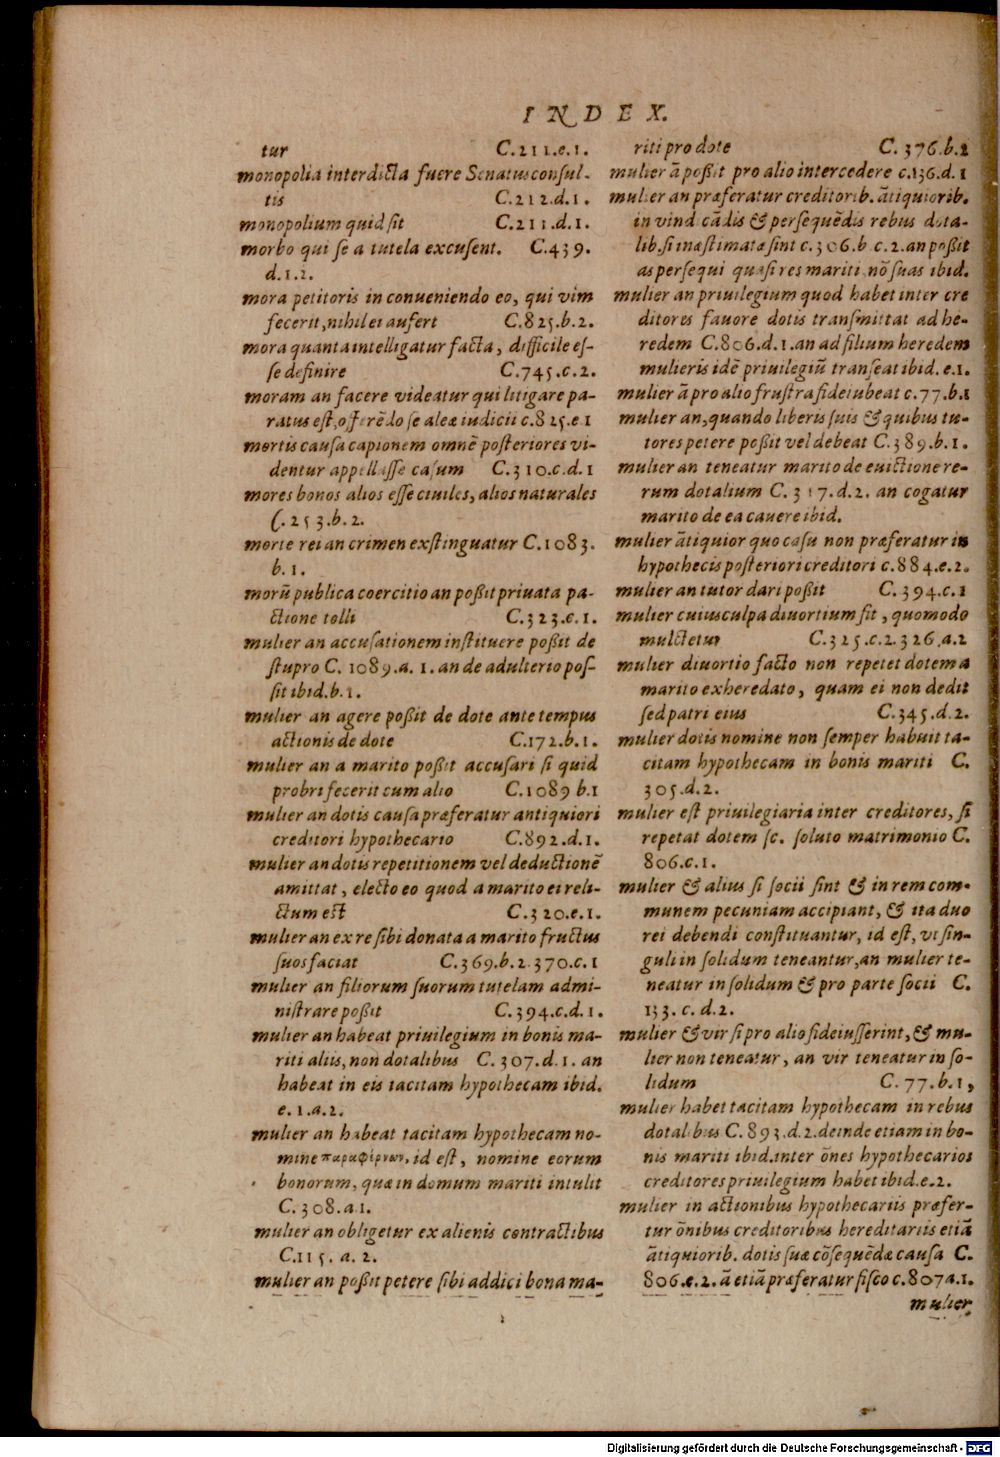 INDEX.
tur C.211.e.1.
monopolia interdicta fuere Senatusconsul-
tis C.212.d.1.
monopolium quid sit C.211.d.1.
morbo qui se a tutela excusent. C.439.
d.1.2.
mora petitoris in conueniendo eo, qui vim
fecerit, nihil ei aufert C.825.b.2.
mora quanta intelligatur facta, difficile es-
se definire C.745.c.2.
moram an facere videatur qui litigare pa-
ratus est, offerẽdo se aleæ iudicii c.825.e.1
mortis causa capionem omnẽ posteriores vi-
dentur appellasse casum C.310.c.d.1
mores bonos alios esse ciuiles, alios naturales
C.253.b.2.
morte rei an crimen exstinguatur C.1083.
b.1.
morũ publica coercitio an poßit priuata pa-
ctione tolli C.323.c.1.
mulier an accusationem instituere poßit de
stupro C. 1089.a. 1. an de adulterio pos-
sit ibid.b.1.
mulier an agere poßit de dote ante tempus
actionis de dote C.172.b.1.
mulier an a marito poßit accusari si quid
probri fecerit cum alio C.1089 b.1
mulier an dotis causa præferatur antiquiori
creditori hypothecario C.892.d.1.
mulier an dotis repetitionem vel deductionẽ
amittat, electo eo quod a marito ei reli-
ctum est C.320.e.1.
mulier an ex re sibi donata a marito fructus
suos faciat C.369.b.2.370.c.1
mulier an filiorum suorum tutelam admi-
nistrare poßit C.394.c.d.1.
mulier an habeat priuilegium in bonis ma-
riti aliis, non dotalibus C.307.d.1. an
habeat in eis tacitam hypothecam ibid.
e.1.a.2.
mulier an habeat tacitam hypothecam no-
mine παραφέρνων, id est, nomine eorum
bonorum, quæ in domum mariti intulit
C.308.a 1.
mulier an obligetur ex alienis contractibus
C.115. a. 2.
mulier an poßit petere sibi addici bona ma-
riti pro dote C. 376.b.2
mulier ã poßit pro alio intercedere c.136.d.1
mulier an præferatur creditorib. ãtiquiorib.
in vindicãdis & persequẽdis rebus dota-
lib. si inæstimatæ sint c.306.b c.2. an poßit
as persequi quasi res mariti, nõ suas ibid.
mulier an priuilegium quod habet inter cre
ditores fauore dotis transmittat ad he-
redem C.806.d.1. an ad filium heredem
mulieris idẽ priuilegiũ transeat ibid. e.1.
mulier ã pro alio frustra fideiubeat c.77.b.1
mulier an, quando liberis suis & quibus tu-
tores petere poßit vel debeat C.389.b.1.
mulier an teneatur marito de euictione re-
rum dotalium C. 317.d.2. an cogatur
marito de ea cauere ibid.
mulier ãtiquior quo casu non præferatur in
hypothecis posteriori creditori c.884.e.2.
mulier an tutor dari poßit C. 394.c.1
mulier cuius culpa diuortium fit, quomodo
mulctetur C.325.c.2.326.a.2
mulier diuortio facto non repetet dotem a
marito exheredato, quam ei non dedit
sed patri eius C.345.d.2.
mulier dotis nomine non semper habuit ta-
citam hypothecam in bonis mariti C.
305.d.2.
mulier est priuilegiaria inter creditores, si
repetat dotem sc. soluto matrimonio C.
806.c.1.
mulier & alius si socii sint & in rem com-
munem pecuniam accipiant, & ita duo
rei debendi constituantur, id est, vt sin-
guli in solidum teneantur, an mulier te-
neatur in solidum & pro parte socii C.
133. c. d.2.
mulier & vir si pro alio fideiusserint, & mu-
lier non teneatur, an vir teneatur in so-
lidum C. 77.b.1,
mulier habet tacitam hypothecam in rebus
dotalibus C.893.d.2. deinde etiam in bo-
nis mariti ibid. inter õnes hypothecarios
creditores priuilegium habet ibid.e.2.
mulier in actionibus hypothecariis præfer-
tur õnibus creditoribus hereditariis etiã
ãtiquiorib. dotis suæ cõsequẽdæ causa C.
806.e.2. ã etiã præferatur fisco c.807 a.1.
mulier
Digitalisierung gefördert durch die Deutsche Forschungsgemeinschaft - DFG